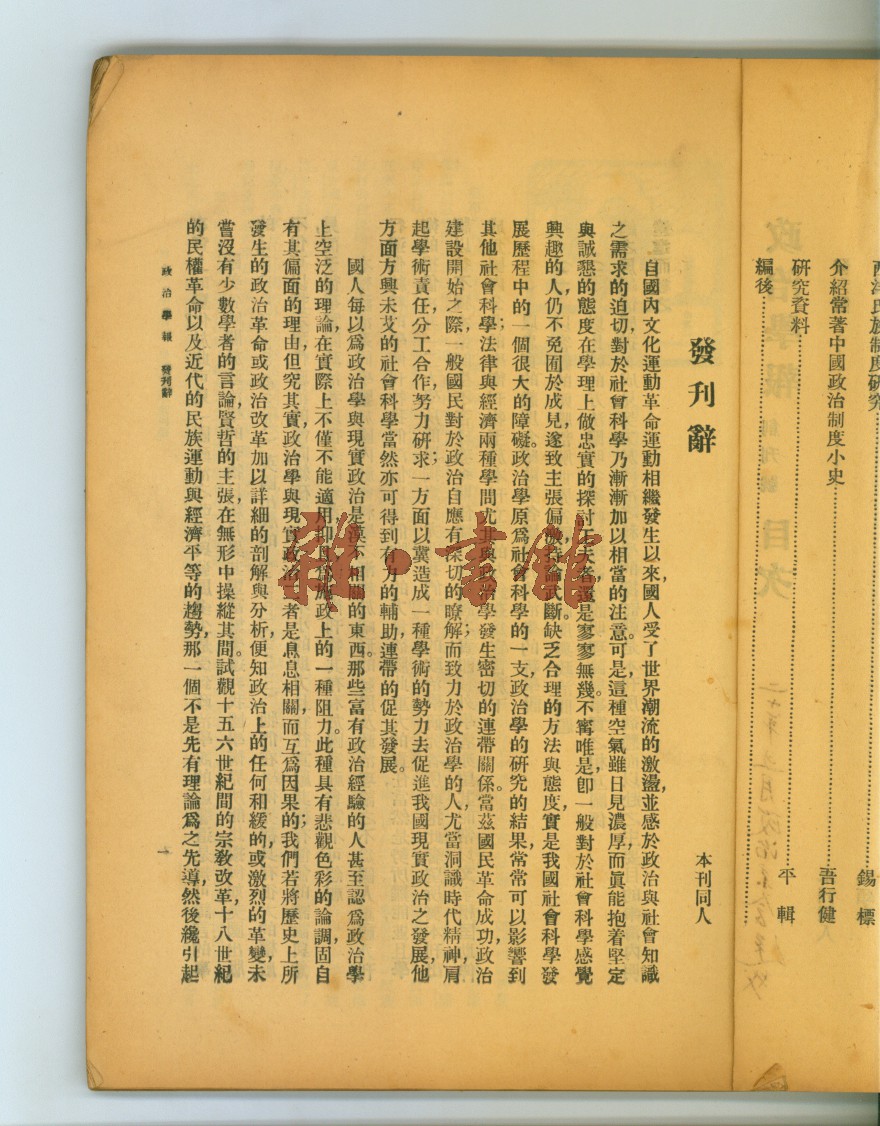 西洋氏族制度研究……錫標
介紹常著中國政治制度小史……吾行健
研究資料……平輯
編後……
發刊辭
本刊同人
自國內文化運動革命運動相繼發生以來,國人受了世界潮流的激盪,並感於政治與社會知識
之需求的迫切,對於社會科學乃漸漸加以相當的注意。可是,這種空氣雖日見濃厚,而眞能抱着堅定
與誠懇的態度在學理上做忠實的探討工夫者,還是寥寥無幾。不寗唯是,卽一般對於社會科學感覺
興趣的人,仍不免囿於成見,遂致主張偏激,持論武斷,缺乏合理的方法與態度,實是我國社會科學發
展歷程中的一個很大的障礙。政治學原爲社會科學的一支,政治學的研究的結果,常常可以影響到
其他社會科學;法律與經濟兩種學問尤其與政治學發生密切的連帶關係。當茲國民革命成功,政治
建設開始之際,一般國民對於政治自應有深切的瞭解;而致力於政治學的人,尤當洞識時代精神,肩
起學術責任,分工合作,努力研求;一方面以冀造成一種學術的勢力去促進我國現實政治之發展,他
方面方興未艾的社會科學當然亦可得到有力的輔助,連帶的促其發展。
國人每以爲政治學與現實政治是漠不相關的東西。那些富有政治經驗的人甚至認爲政治學
上空泛的理論,在實際上不僅不能適用,抑且爲施政上的一種阻力。此種具有悲觀色彩的論調,固自
有其偏面的理由,但究其實,政治學與現實政治二者是息息相關,而互爲因果的;我們若將歷史上所
發生的政治革命或政治改革加以詳細的剖解與分析,便知政治上的任何和緩的,或激烈的革變,未
嘗沒有少數學者的言論,賢哲的主張,在無形中操縱其間。試觀十五六世紀間的宗敎改革,十八世紀
的民權革命以及近代的民族運動與經濟平等的趨勢,那一個不是先有理論爲之先導,然後纔引起
政治學報 發刊辭
一
雅·書館